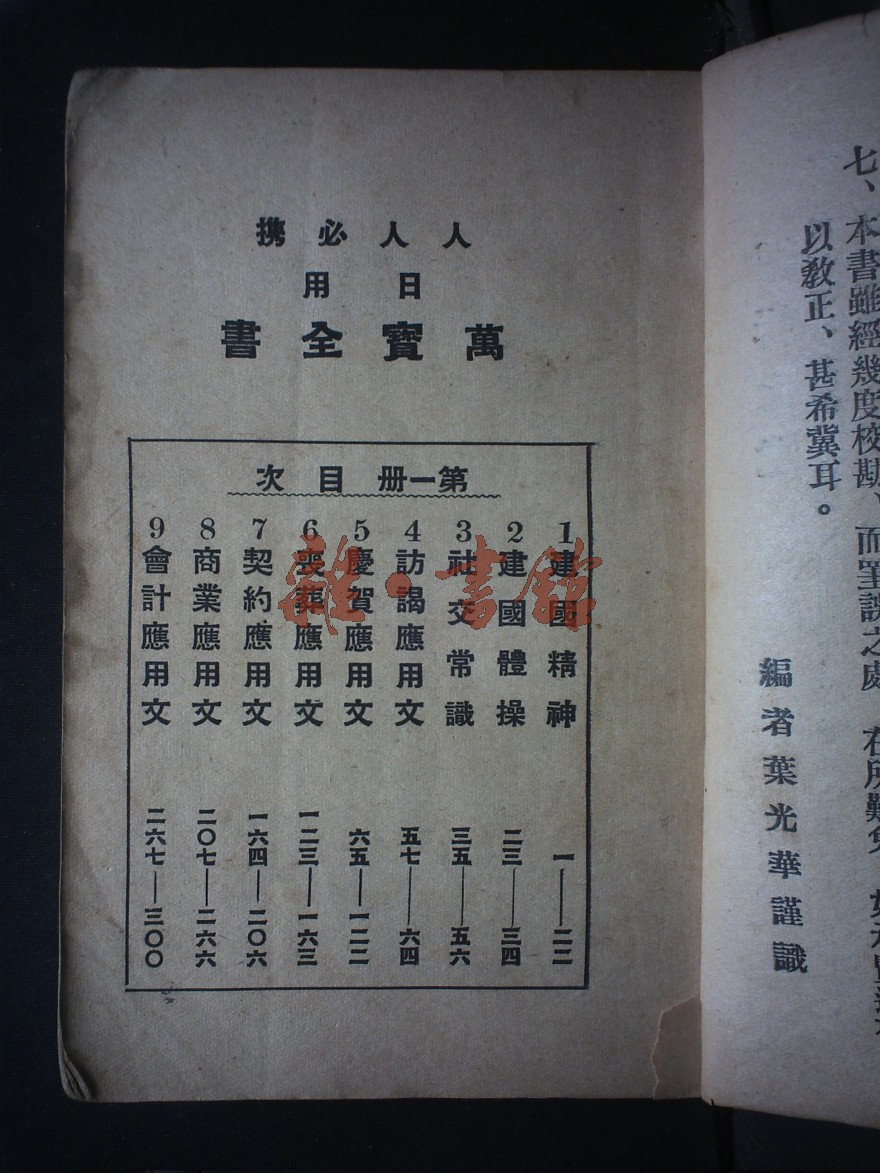 七、本書雖經幾度校勘、而筆誤之處 在所難免
以教正、甚希冀耳。
編者葉光華謹識
人人必攜
日用
萬寶全書
第一冊目次
1建國精神 一—二二
2建國體操 二三—三四
3社交常識 三五—五六
4訪謁應用文 五七—六四
5慶賀應用文 六五—一二二
6喪葬應用文 一二三—一六三
7契約應用文 一六四—二〇六
8商業應用文 二〇七—二六六
9會計應用文 二六七—三〇〇
雜·書館